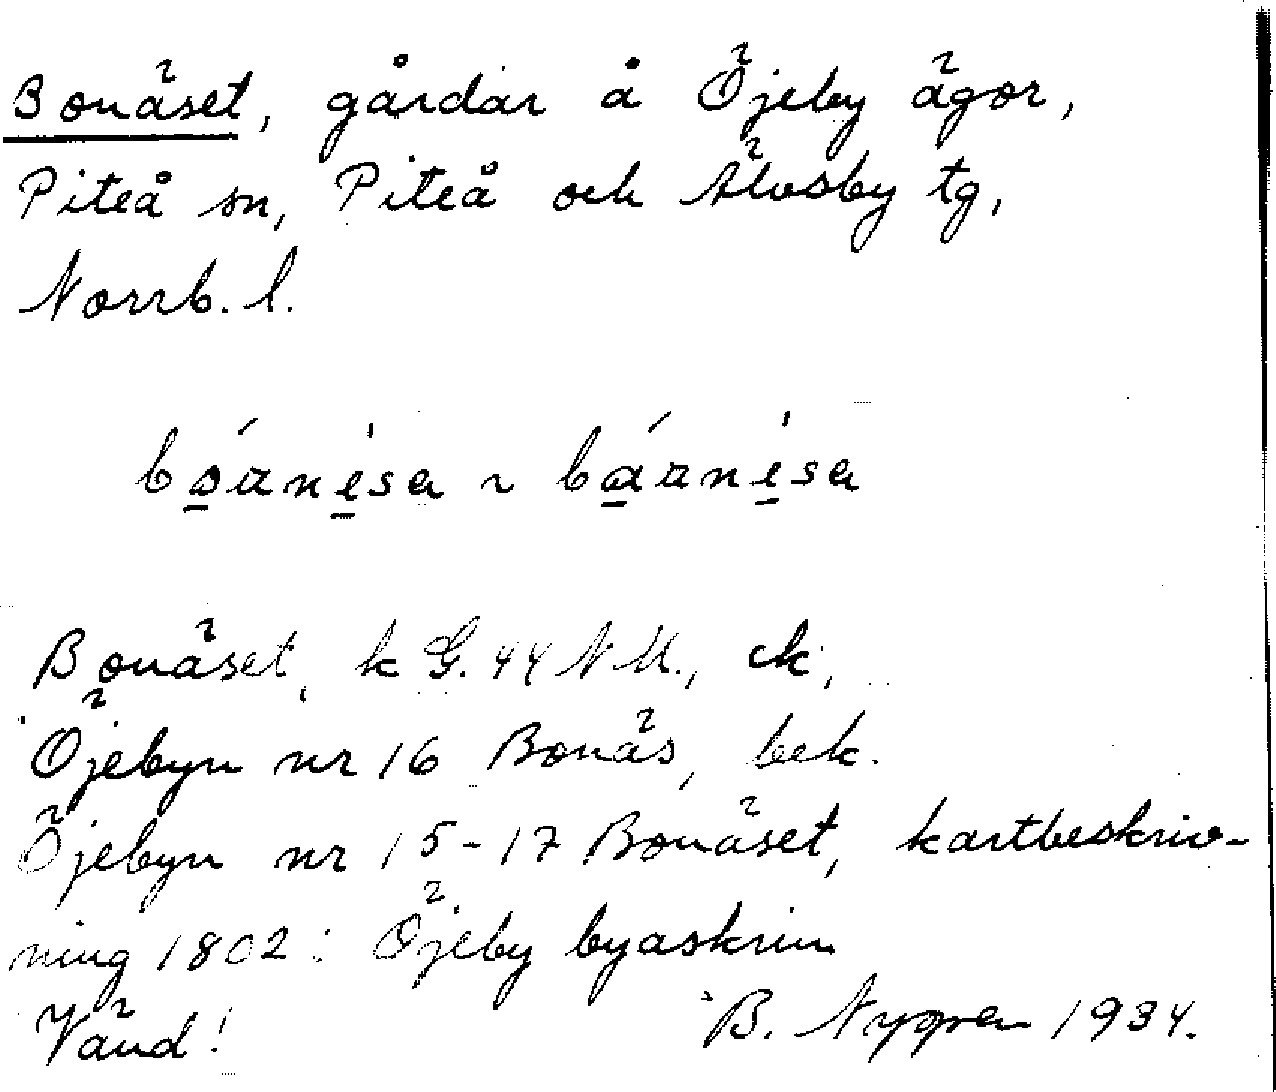 Bonäset, gårdar å Öjeby ägor,
Piteå sn, Piteå och Älvsby tg,
Norrb. l.
Bonäset, k G. 44 NU., ek,
Öjebyn nr 16 Bonäs, bek.
Öjebyn nr 15-17 Bonäset, kartbeskriv-
ning 1802: Öjeby byaskrin
Vänd! B. Nygren 1934.